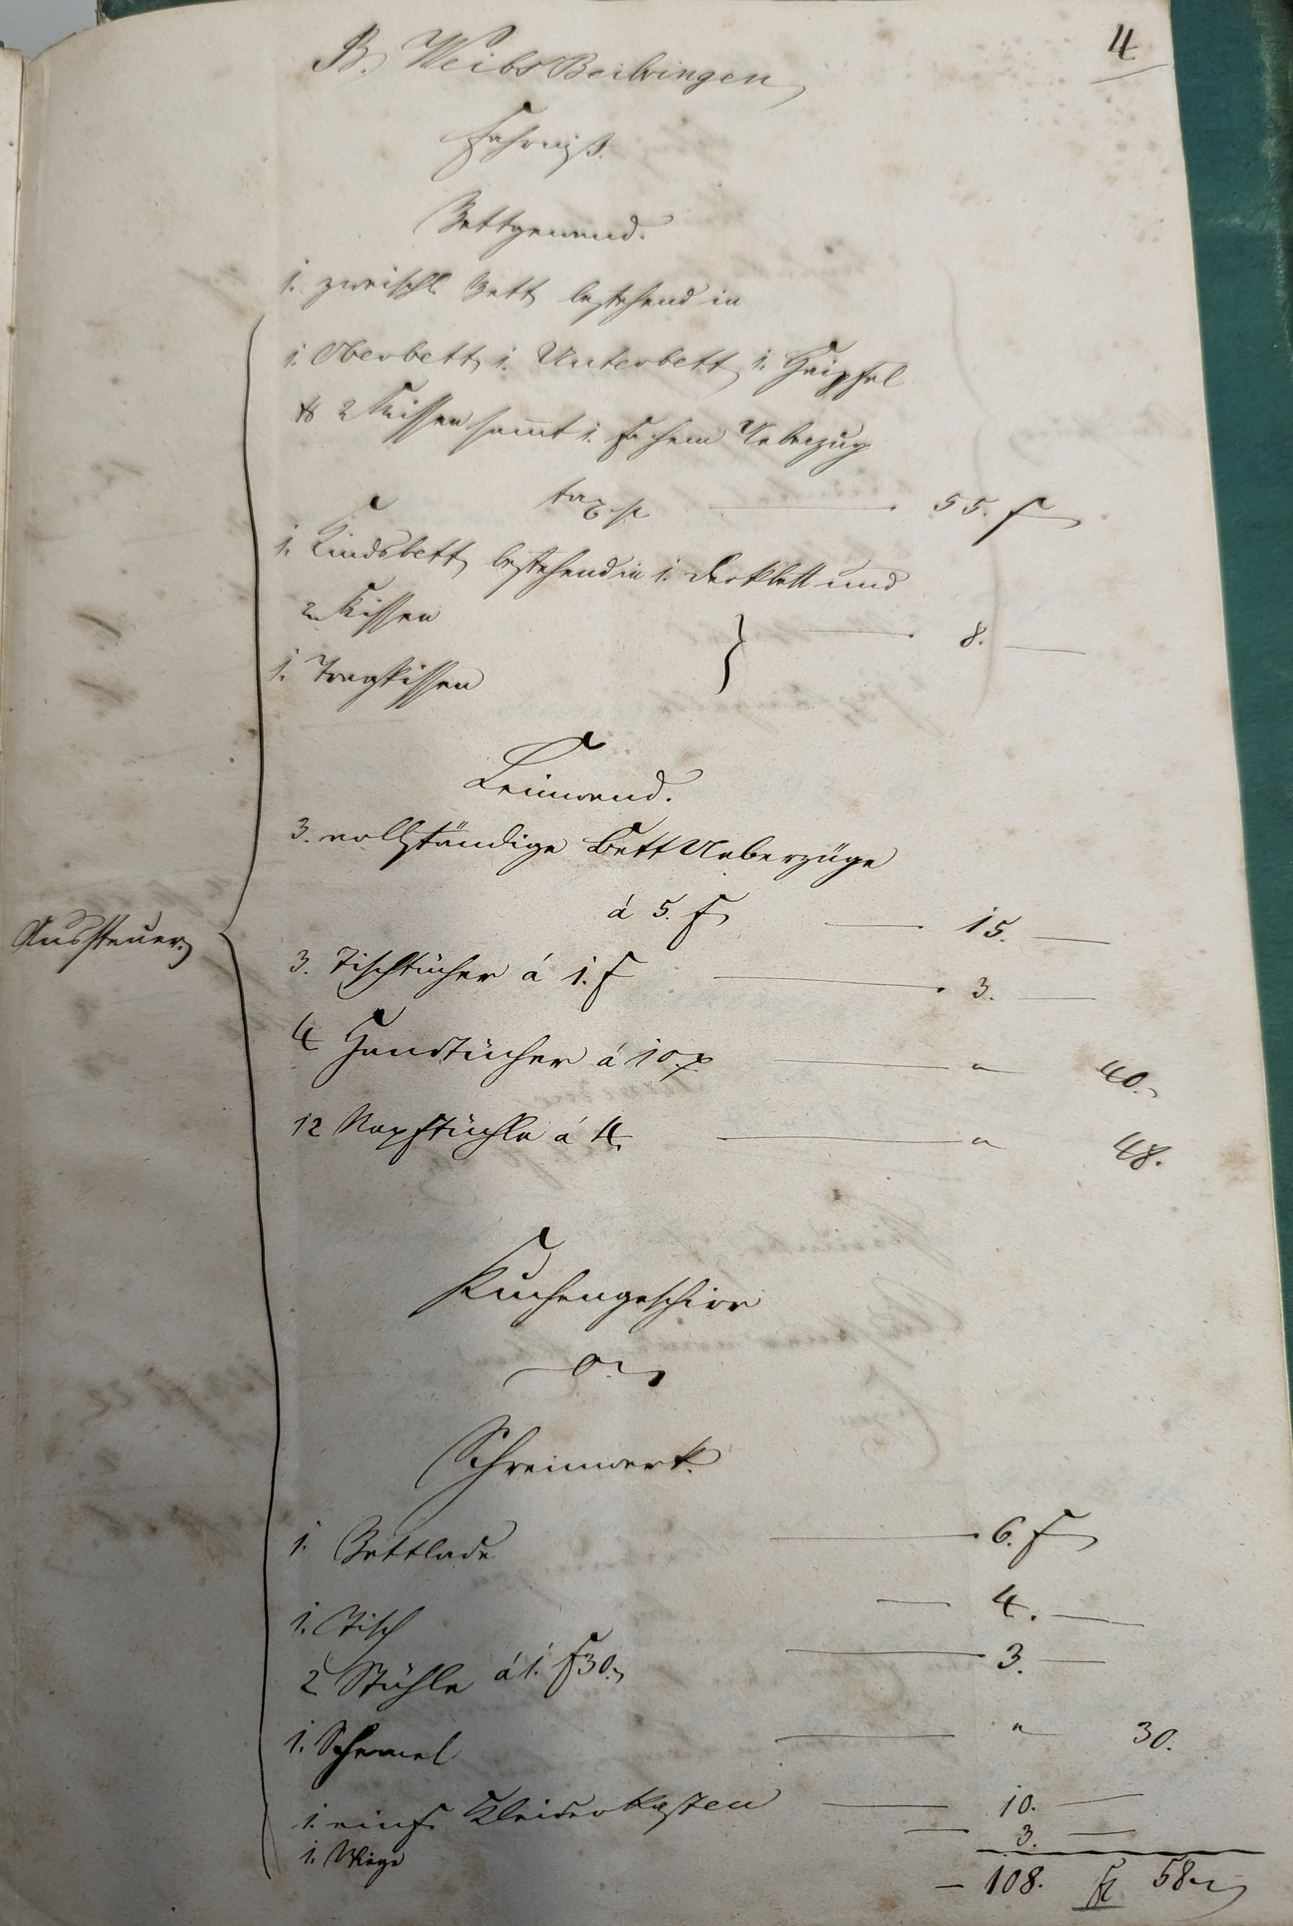 4
B. Weibs Beibringen
Fahrniß.
Bettgewand.
1. zweischl. Bett, bestehend in
1. Oberbett, 1. Unterbett, 1. Haipfel
& 2 Kissen sammt 1. fachem Ueberzug
tax. p — 55. f
1. Kindsbett, bestehend in 1. Deckbett und
2. Kissen } — 8. —
1. Tragkissen
Leinwand.
3. vollständige Bett Ueberzüge
á 5. f — 15. —
Aussteuer.
3. Tischtücher á 1. f — 3. —
4 Handtücher á 10 x. — " 40.
12 Napftüchle á 4. — " 48.
Kuchengeschirr
— 0.
Schreinwerk.
1. Bettlade — 6. f
1. Tisch — 4. —
2 Stühle á 1. f 30. — 3. —
1. Schemel — " 30.
1. einf. Kleiderkasten — 10. —
1. Wiege — 3. —
— 108. fl 58.